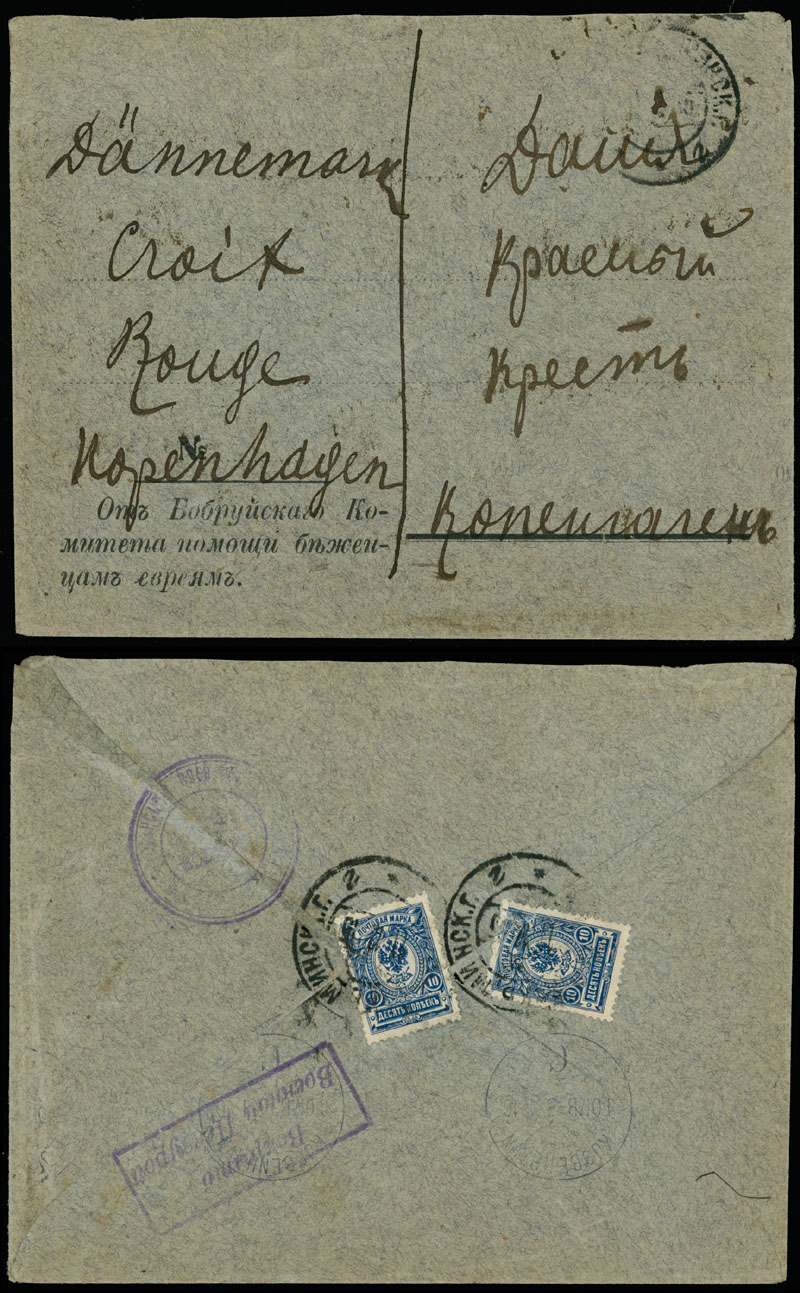 Dännemark
Croix
Rouge
Kopenhagen
№
Отъ Бобруйскаго Ко-
митета помощи бѣжен-
цамъ евреямъ.
Красный
Крестъ
Копенгагенъ
МИНСК.Г. 2
МИНСК.Г. 2
ПОЧТОВАЯ МАРКА
10 10
ДЕСЯТЬ КОПѢЕКЪ
ПОЧТОВАЯ МАРКА
10 10
ДЕСЯТЬ КОПѢЕКЪ
Вскрыто
Военной Цензурой